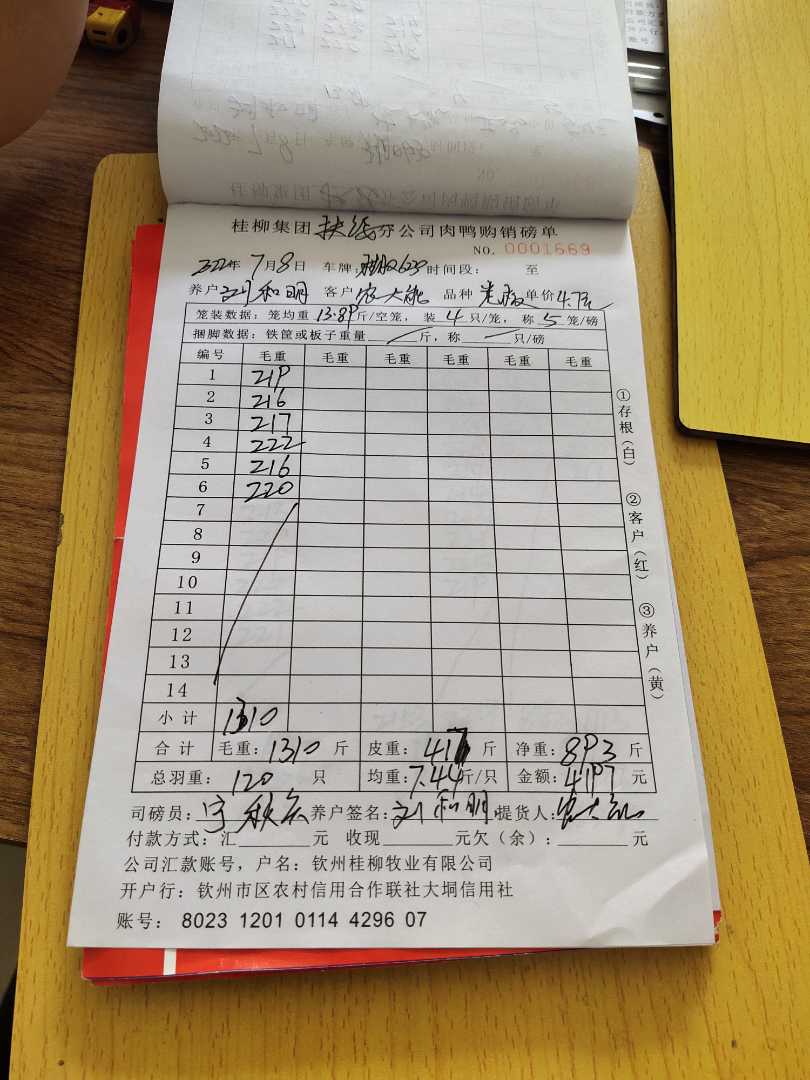 桂柳集团扶绥分公司肉鸭购销磅单
NO. 0001669
2022年7月8日 车牌: 时间段: 至
养户刘和明 客户农大能 品种 单价4.7元
笼装数据: 笼均重13.89斤/空笼, 装4只/笼, 称5笼/磅
捆脚数据: 铁筐或板子重量 斤, 称 只/磅
编号 毛重 毛重 毛重 毛重 毛重 毛重
1 219
2 216
3 217
4 222
5 216
6 220
7
8
9
10
11
12
13
14
小计 1310
合计 毛重: 1310斤 皮重: 417斤 净重: 893斤
总羽重: 120只 均重: 7.44斤/只 金额: 4197元
司磅员: 养户签名: 刘和明 提货人: 农大能
付款方式: 汇 元 收现 元欠(余): 元
公司汇款账号, 户名: 钦州桂柳牧业有限公司
开户行: 钦州市区农村信用合作联社大垌信用社
账号: 8023 1201 0114 4296 07
①存根(白)
②客户(红)
③养户(黄)